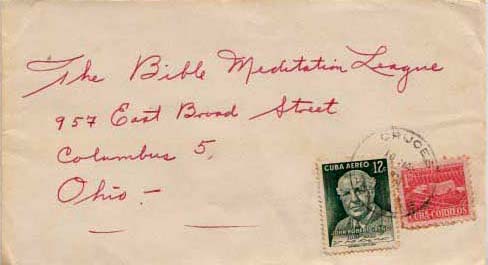 The Bible Meditation League
957 East Broad Street
Columbus 5,
Ohio -
CRUCES
CUBA AEREO 12¢
JOHN ROBERT GREGG
CORREOS